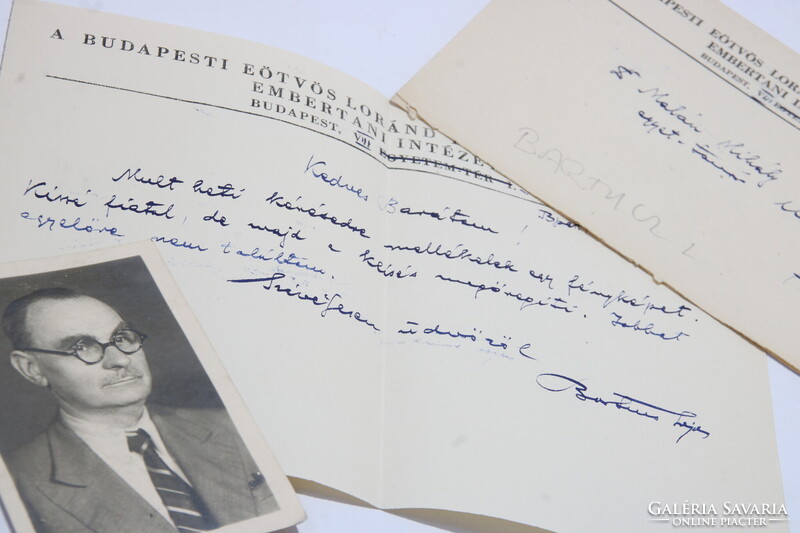 A BUDAPESTI EÖTVÖS LORÁND
EMBERTANI INTÉZE
BUDAPEST, VIII EGYETEM-TÉR
Kedves Barátom!
Mult heti kérésedre mellékelek egy fényképet.
Kissé fiatal, de majd a klisés megöregíti. Jobbat
egyelőre nem találtam.
Szívélyesen üdvözöl
Bartucz Lajos
APESTI EÖTVÖS LORÁN
EMBERTANI I
BUDAPEST, VIII
Malán Mihály
egyet. tanár
BARTUCZ L
GALÉRIA SAVARIA
ONLINE PIACTÉR